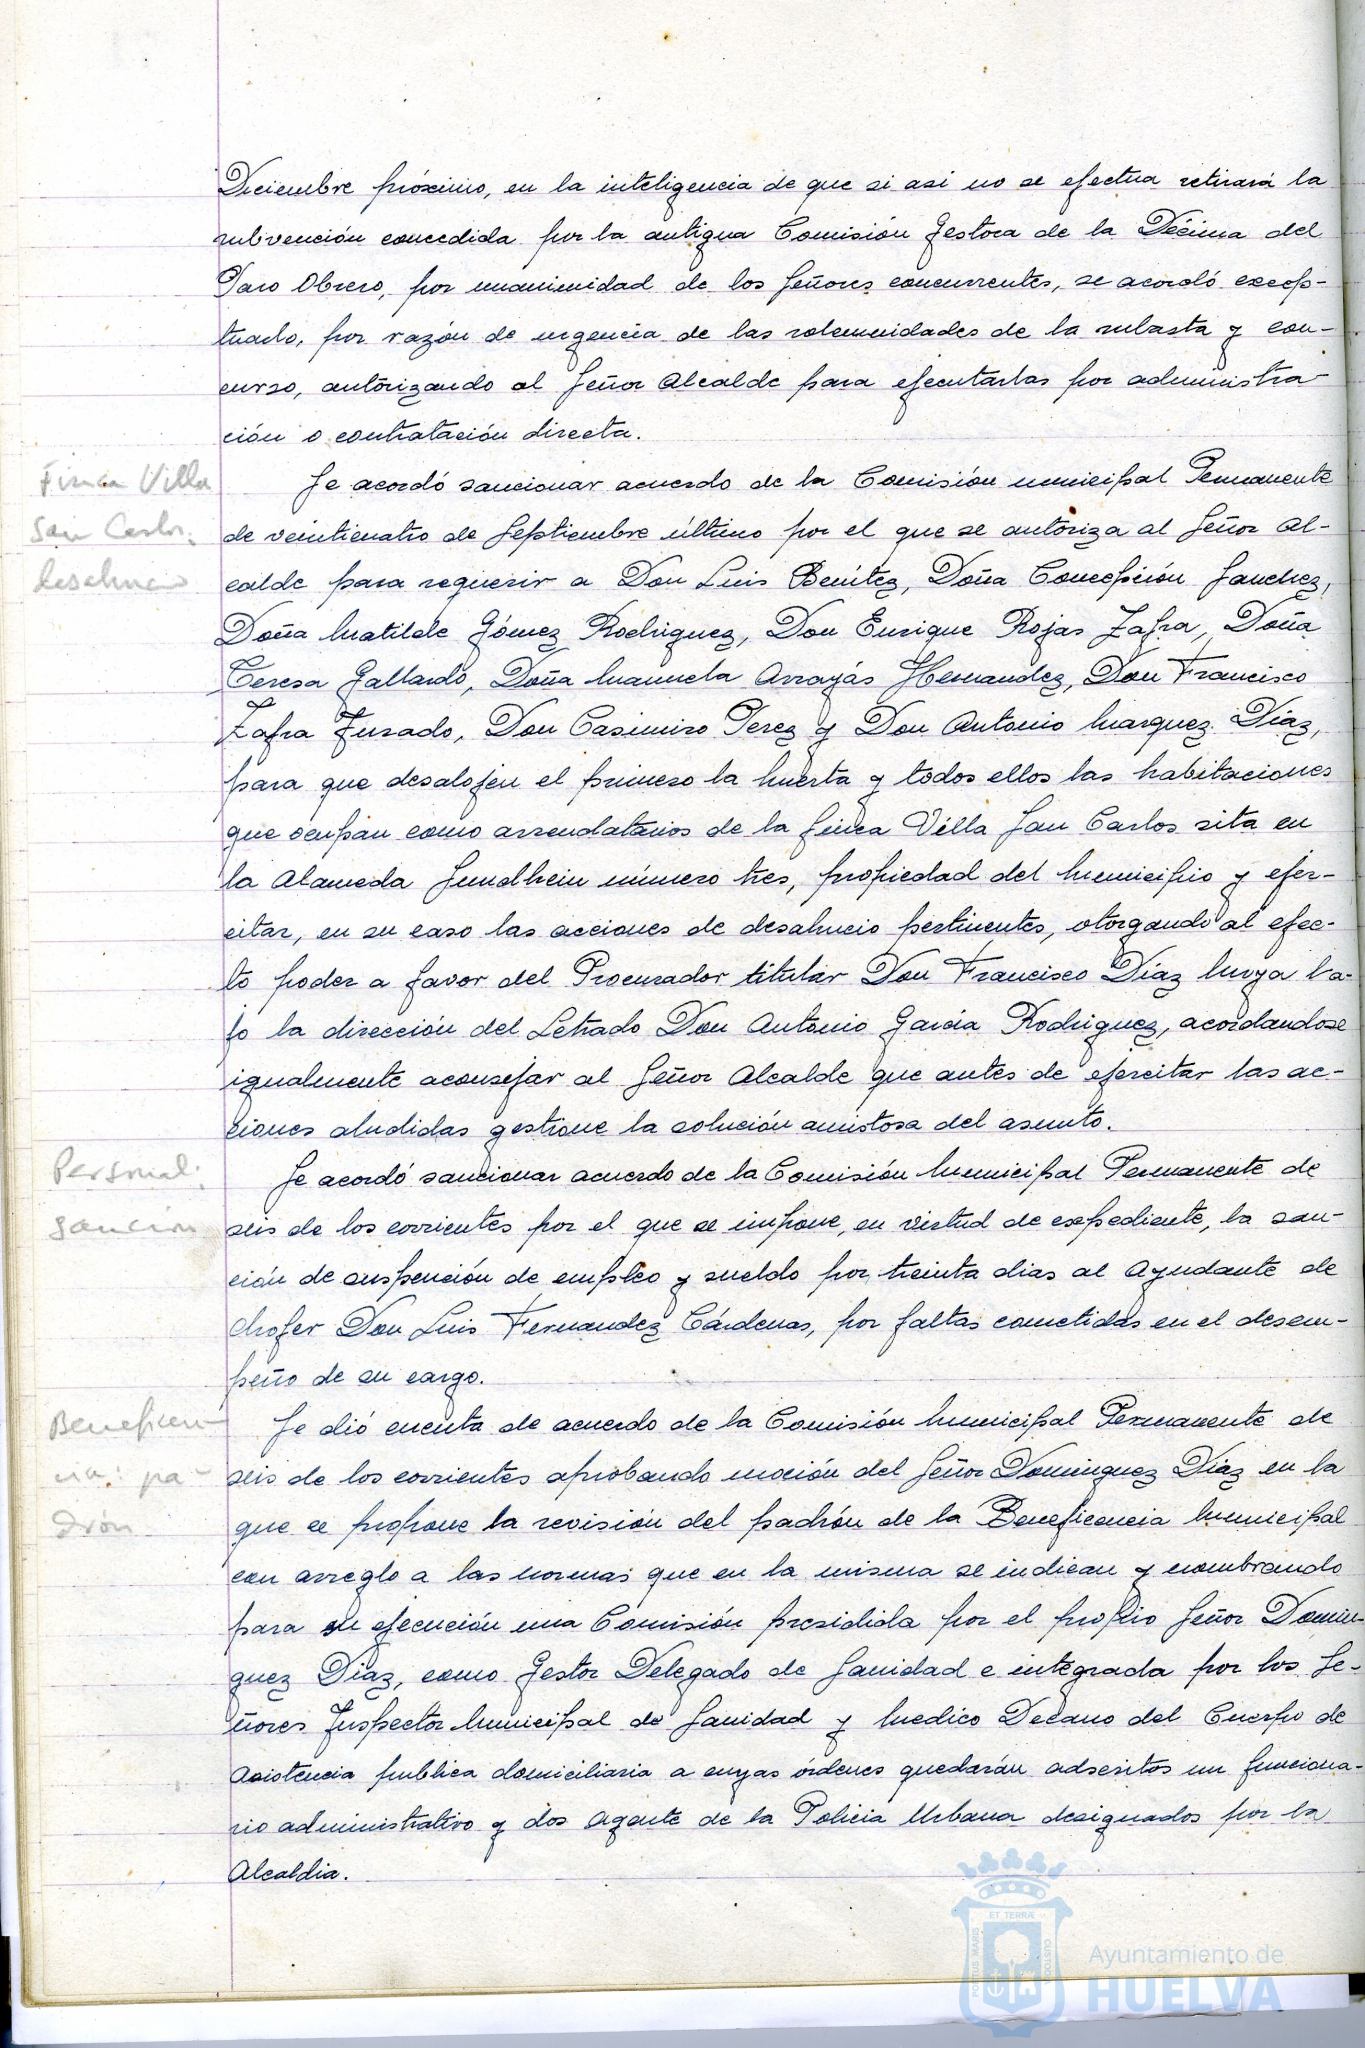 Diciembre próximo, en la inteligencia de que si asi no se efectua retirará la
subvención concedida por la antigua Comisión Gestora de la Décima del
Paro Obrero, por unanimidad de los Señores concurrentes, se acordó excep-
tuarlo, por razón de urgencia de las solemnidades de la subasta y con-
curso, autorizando al Señor Alcalde para ejecutarlas por administra-
ción o contratación directa.
Finca Villa
San Carlos.
desahucio
Se acordó sancionar acuerdo de la Comisión municipal Permanente
de veinticuatro de Septiembre último por el que se autoriza al Señor Al-
calde para requerir a Don Luis Benítez, Doña Concepción Sanchez,
Doña Matilde Gómez Rodriguez, Don Enrique Rojas Zafra, Doña
Teresa Gallardo, Doña Manuela Arrayás Hernandez, Don Francisco
Zafra Jurado, Don Casimiro Perez y Don Antonio Marquez Diaz,
para que desalojen el primero la huerta y todos ellos las habitaciones
que ocupan como arrendatarios de la finca Villa San Carlos sita en
la Alameda Sundhein número tres, propiedad del Municipio y ejer-
citar, en su caso las acciones de desahucio pertinentes, otorgando al efec-
to poder a favor del Procurador titular Don Francisco Díaz Moya ba-
jo la dirección del Letrado Don Antonio García Rodriguez, acordandose
igualmente aconsejar al Señor Alcalde que antes de ejercitar las ac-
ciones aludidas gestione la solución amistosa del asunto.
Personal:
sanción
Se acordó sancionar acuerdo de la Comisión Municipal Permanente de
seis de los corrientes por el que se impone, en virtud de expediente, la san-
ción de suspención de empleo y sueldo por treinta dias al Ayudante de
chofer Don Luis Fernandez Cárdenas, por faltas cometidas en el desem-
peño de su cargo.
Beneficen-
cia: pa-
drón
Se dió cuenta de acuerdo de la Comisión Municipal Permanente de
seis de los corrientes aprobando moción del Señor Dominguez Diaz en la
que se propone la revisión del padrón de la Beneficencia Municipal
con arreglo a las normas que en la misma se indican y nombrando
para su ejecución una Comisión presidida por el propio Señor Domin-
guez Diaz, como Gestor Delegado de Sanidad e integrada por los Se-
ñores Inspector Municipal de Sanidad y Medico Decano del Cuerpo de
Asistencia publica domiciliaria a cuyas órdenes quedarán adscritos un funciona-
rio administrativo y dos Agente de la Policia Urbana designados por la
Alcaldia.
ET TERRÆ
PORTUS MARIS
CUSTODIA
Ayuntamiento de
HUELVA